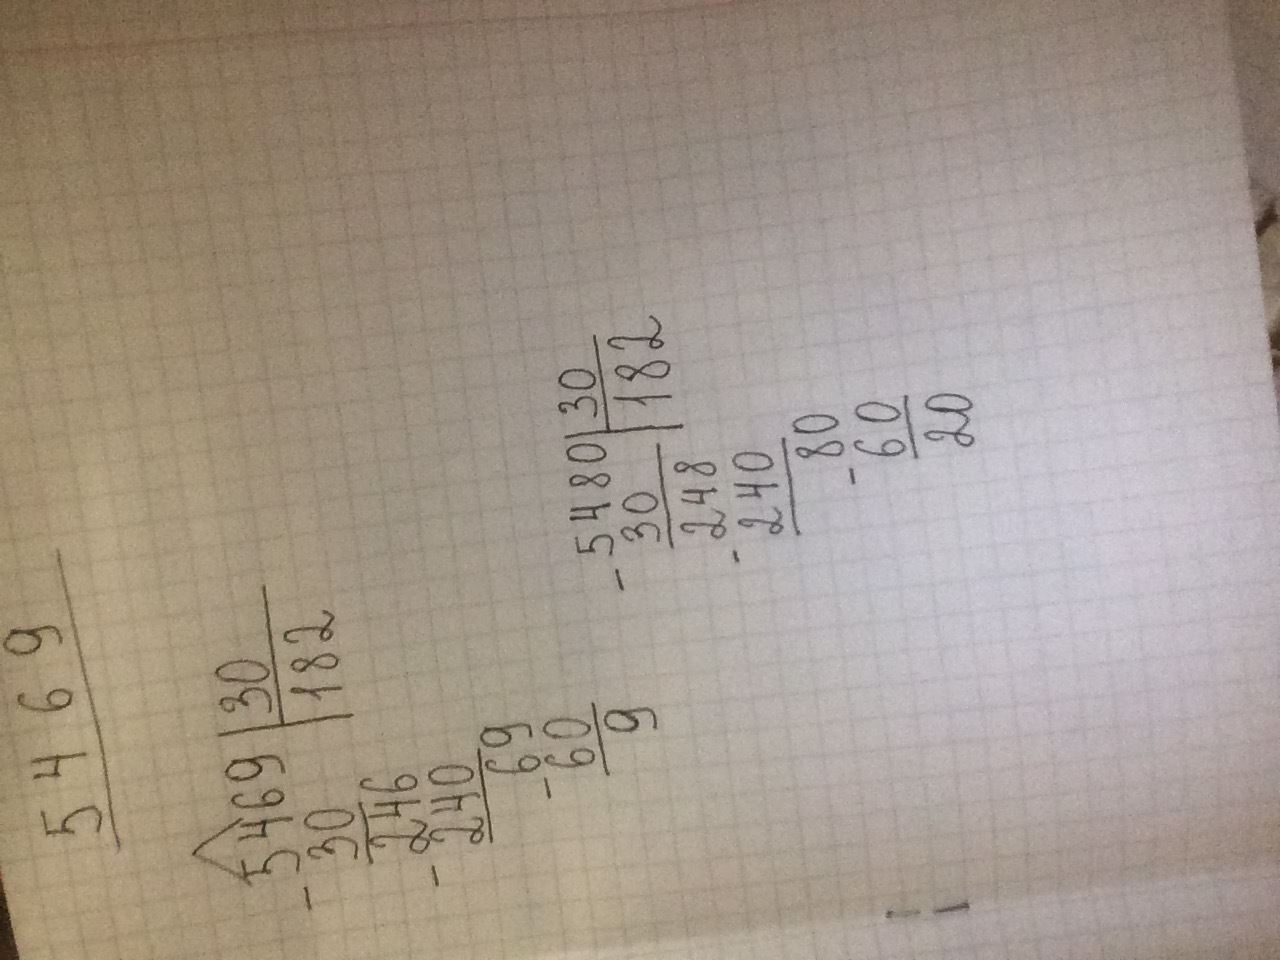 5 4 6 9
- 5469 | 30
30 | 182
- 246
240
- 69
60
9
- 5480 | 30
30 | 182
- 248
240
- 80
60
20